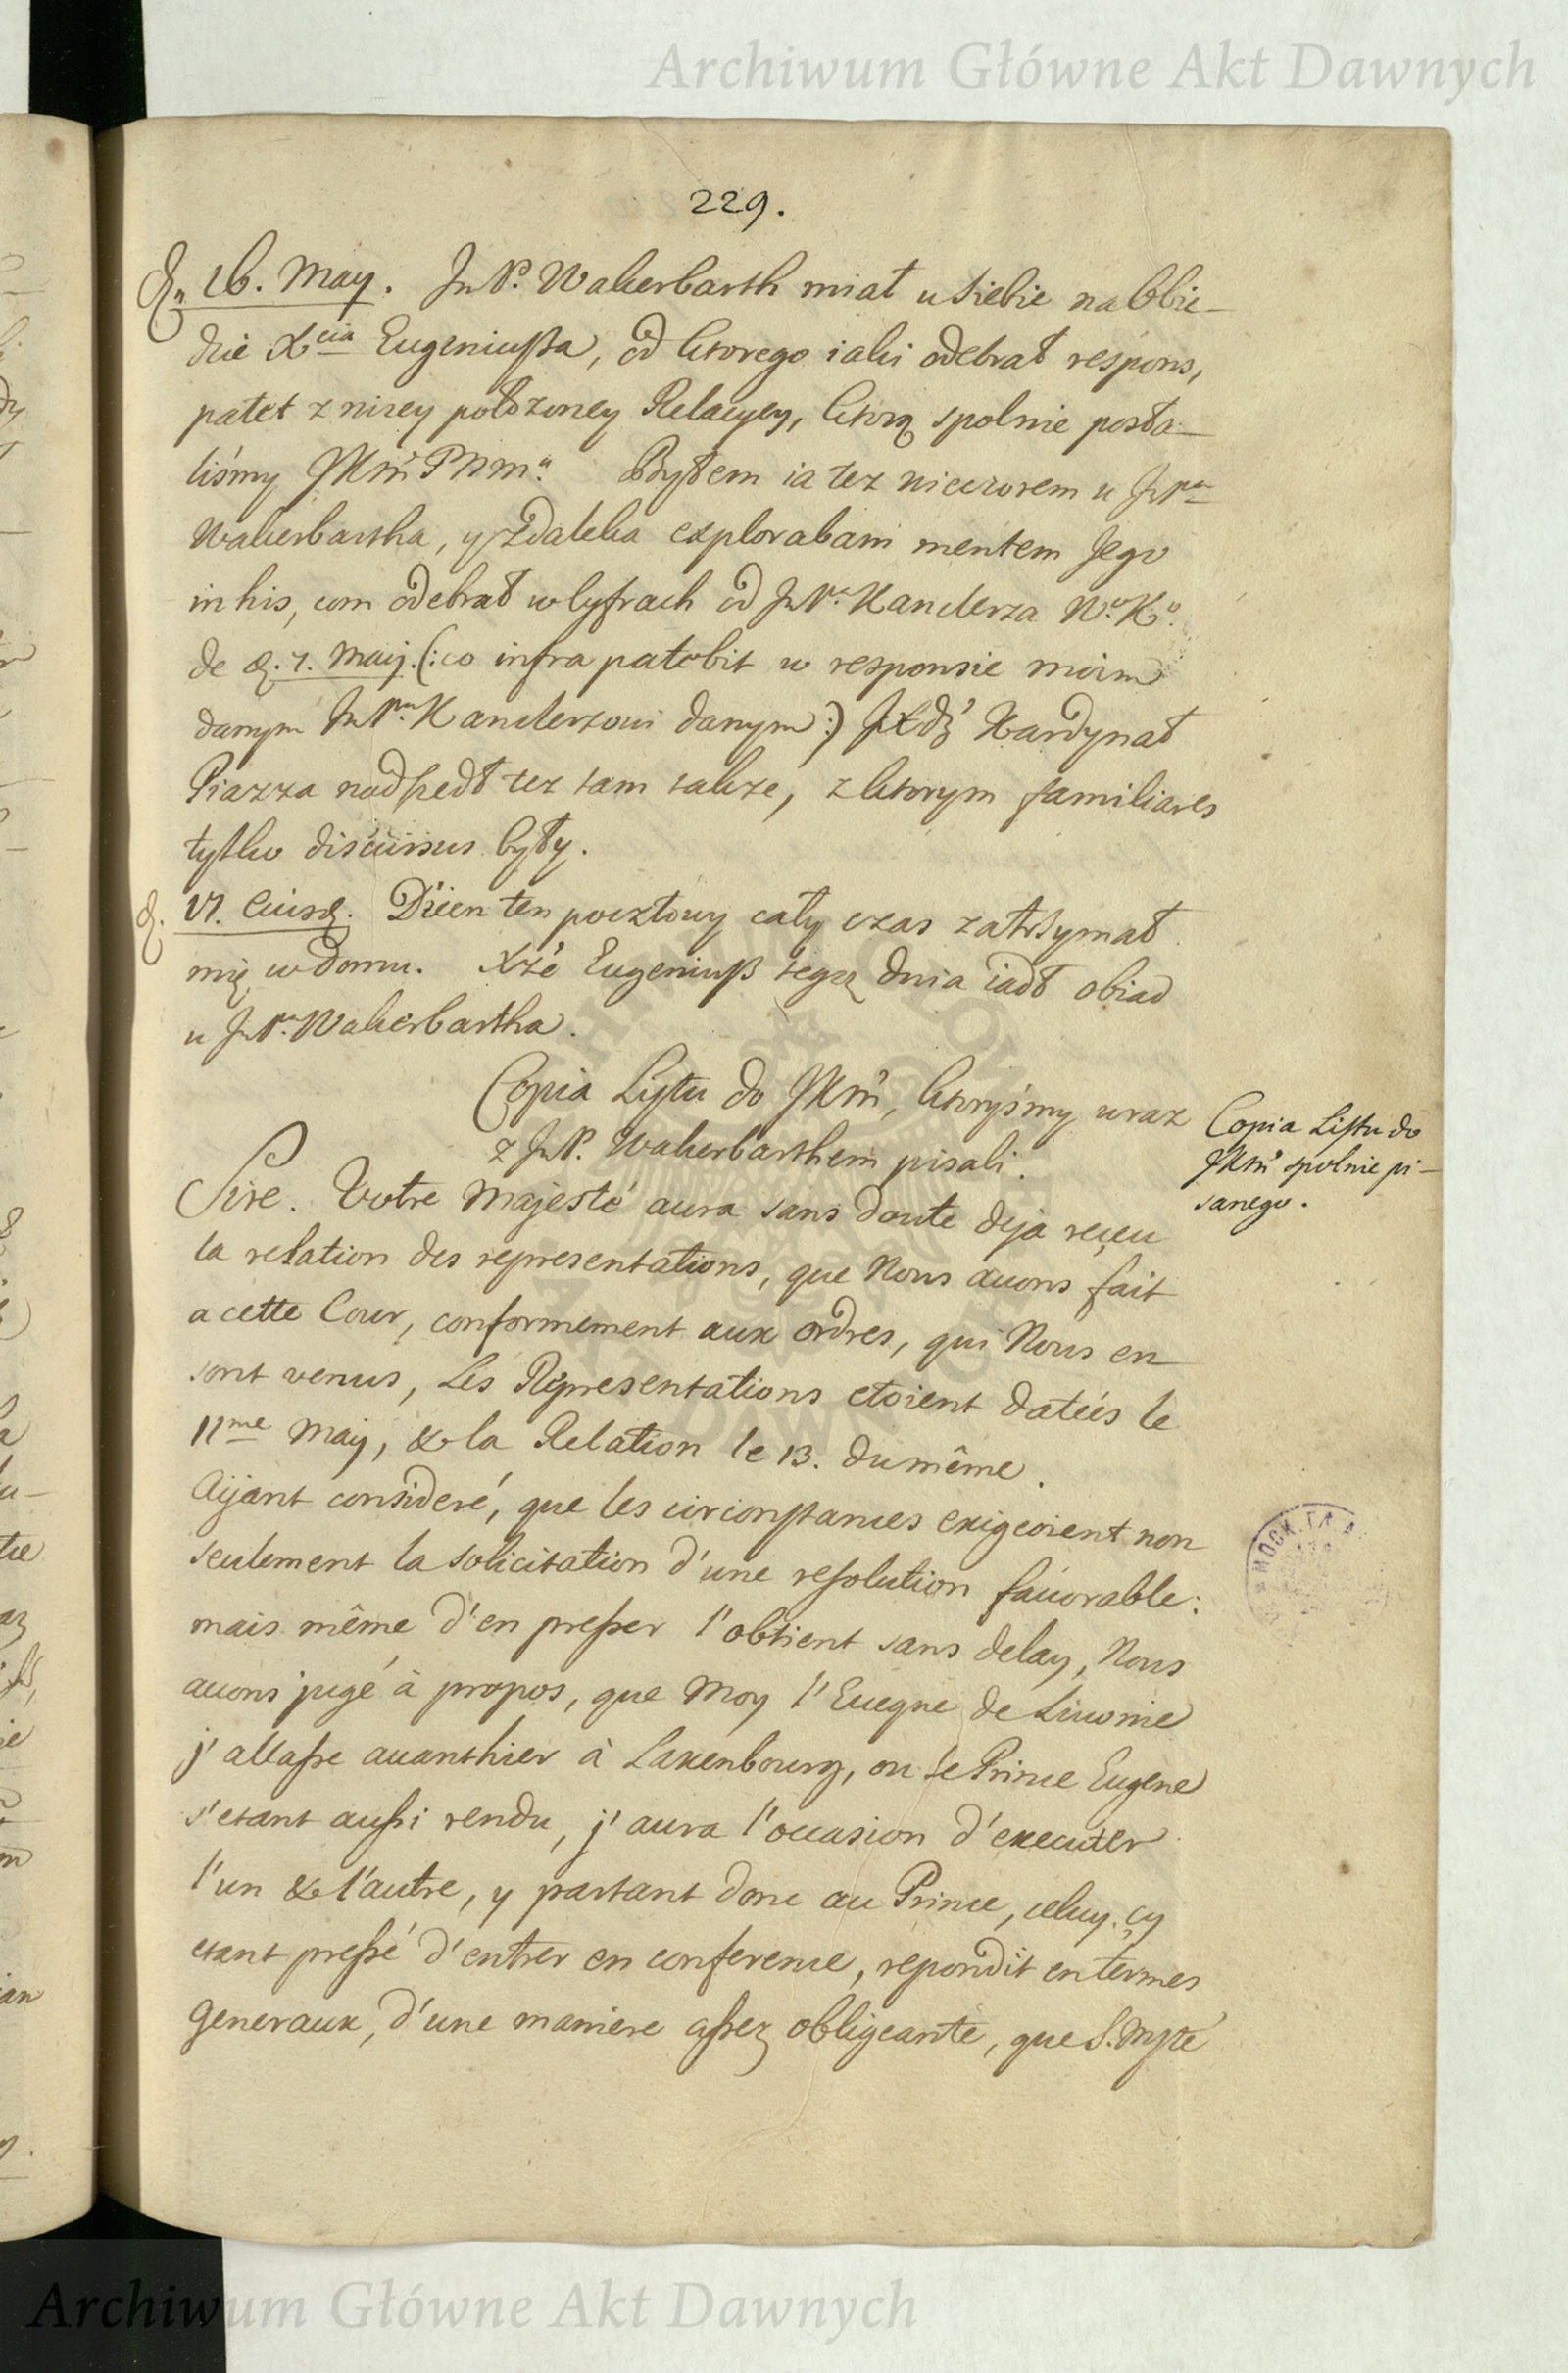 Archiwum Główne Akt Dawnych
229.
d. 16. May. JmP. Wakerbarth miał u siebie na Obie-
dzie Xcia Eugeniusza, od ktorego iaki odebrał respons,
patet z nizey położoney Relacyey, ktorą spolnie posła-
liśmy JKMci PNMu. Byłem ia tez wieczorem u JmPa
Wakerbartha, y zdaleka explorabam mentem Jego
in his, com odebrał w Cyfrach od JmPa Kanclerza W. K.
de d. 7. Maij. (: co infra patebit w responsie moim
danym JmPu Kanclerzowi danym :) JXdz Kardynał
Piazza nadszedł tez tam takze, z ktorym familiares
tylko discursus były.
d. 17. Eiusd. Dzien ten pocztowy cały czas zatrzymał
mię w domu. Xże Eugeniusz tegoż dnia iadł obiad
u JmPa Wakerbartha.
Copia Listu do JKMci, ktoryśmy wraz
z JmP. Wakerbarthem pisali.
Copia Listu do
JKMci spolnie pi-
sanego.
Sire. Votre Majesté aura sans doute deja reçeu
la relation des representations, que Nous auons fait
a cette Cour, conformement aux ordres, qui Nous en
sont venus, Les Representations etoient dateés le
11me May, & la Relation le 13. du même.
Aijant consideré, que les circonstances exigeoient non
seulement la solicitation d'une resolution fauorable:
mais même d'en presser l'obtient sans delay, Nous
auons jugé à propos, que Moy l'Eueque de Liuonie
j'allasse auanthier à Laxenbourg, ou le Prince Eugene
s'etant aussi rendu, j'aura l'occasion d'executer
l'un & l'autre, y partant donc au Prince, celuy. cy
etant pressé d'entrer en conference, repondit en termes
Generaux, d'une maniere assez obligeante, que S. Mjté
Archiwum Główne Akt Dawnych